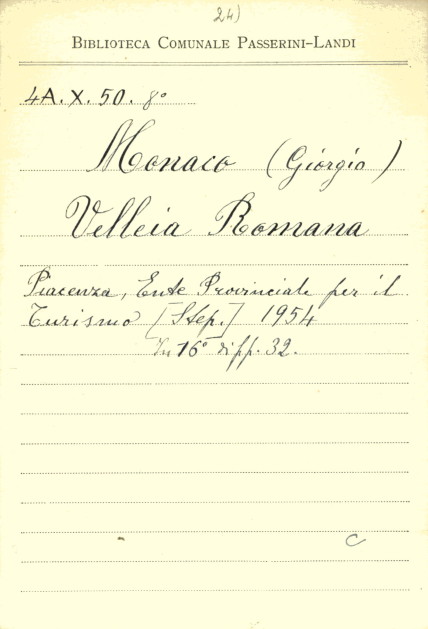 24)
BIBLIOTECA COMUNALE PASSERINI-LANDI
4A. X. 50. 8º
Monaco (Giorgio)
Velleia Romana
Piacenza, Ente Provinciale per il
Turismo [Step.] 1954
In 16º di pp. 32.
C